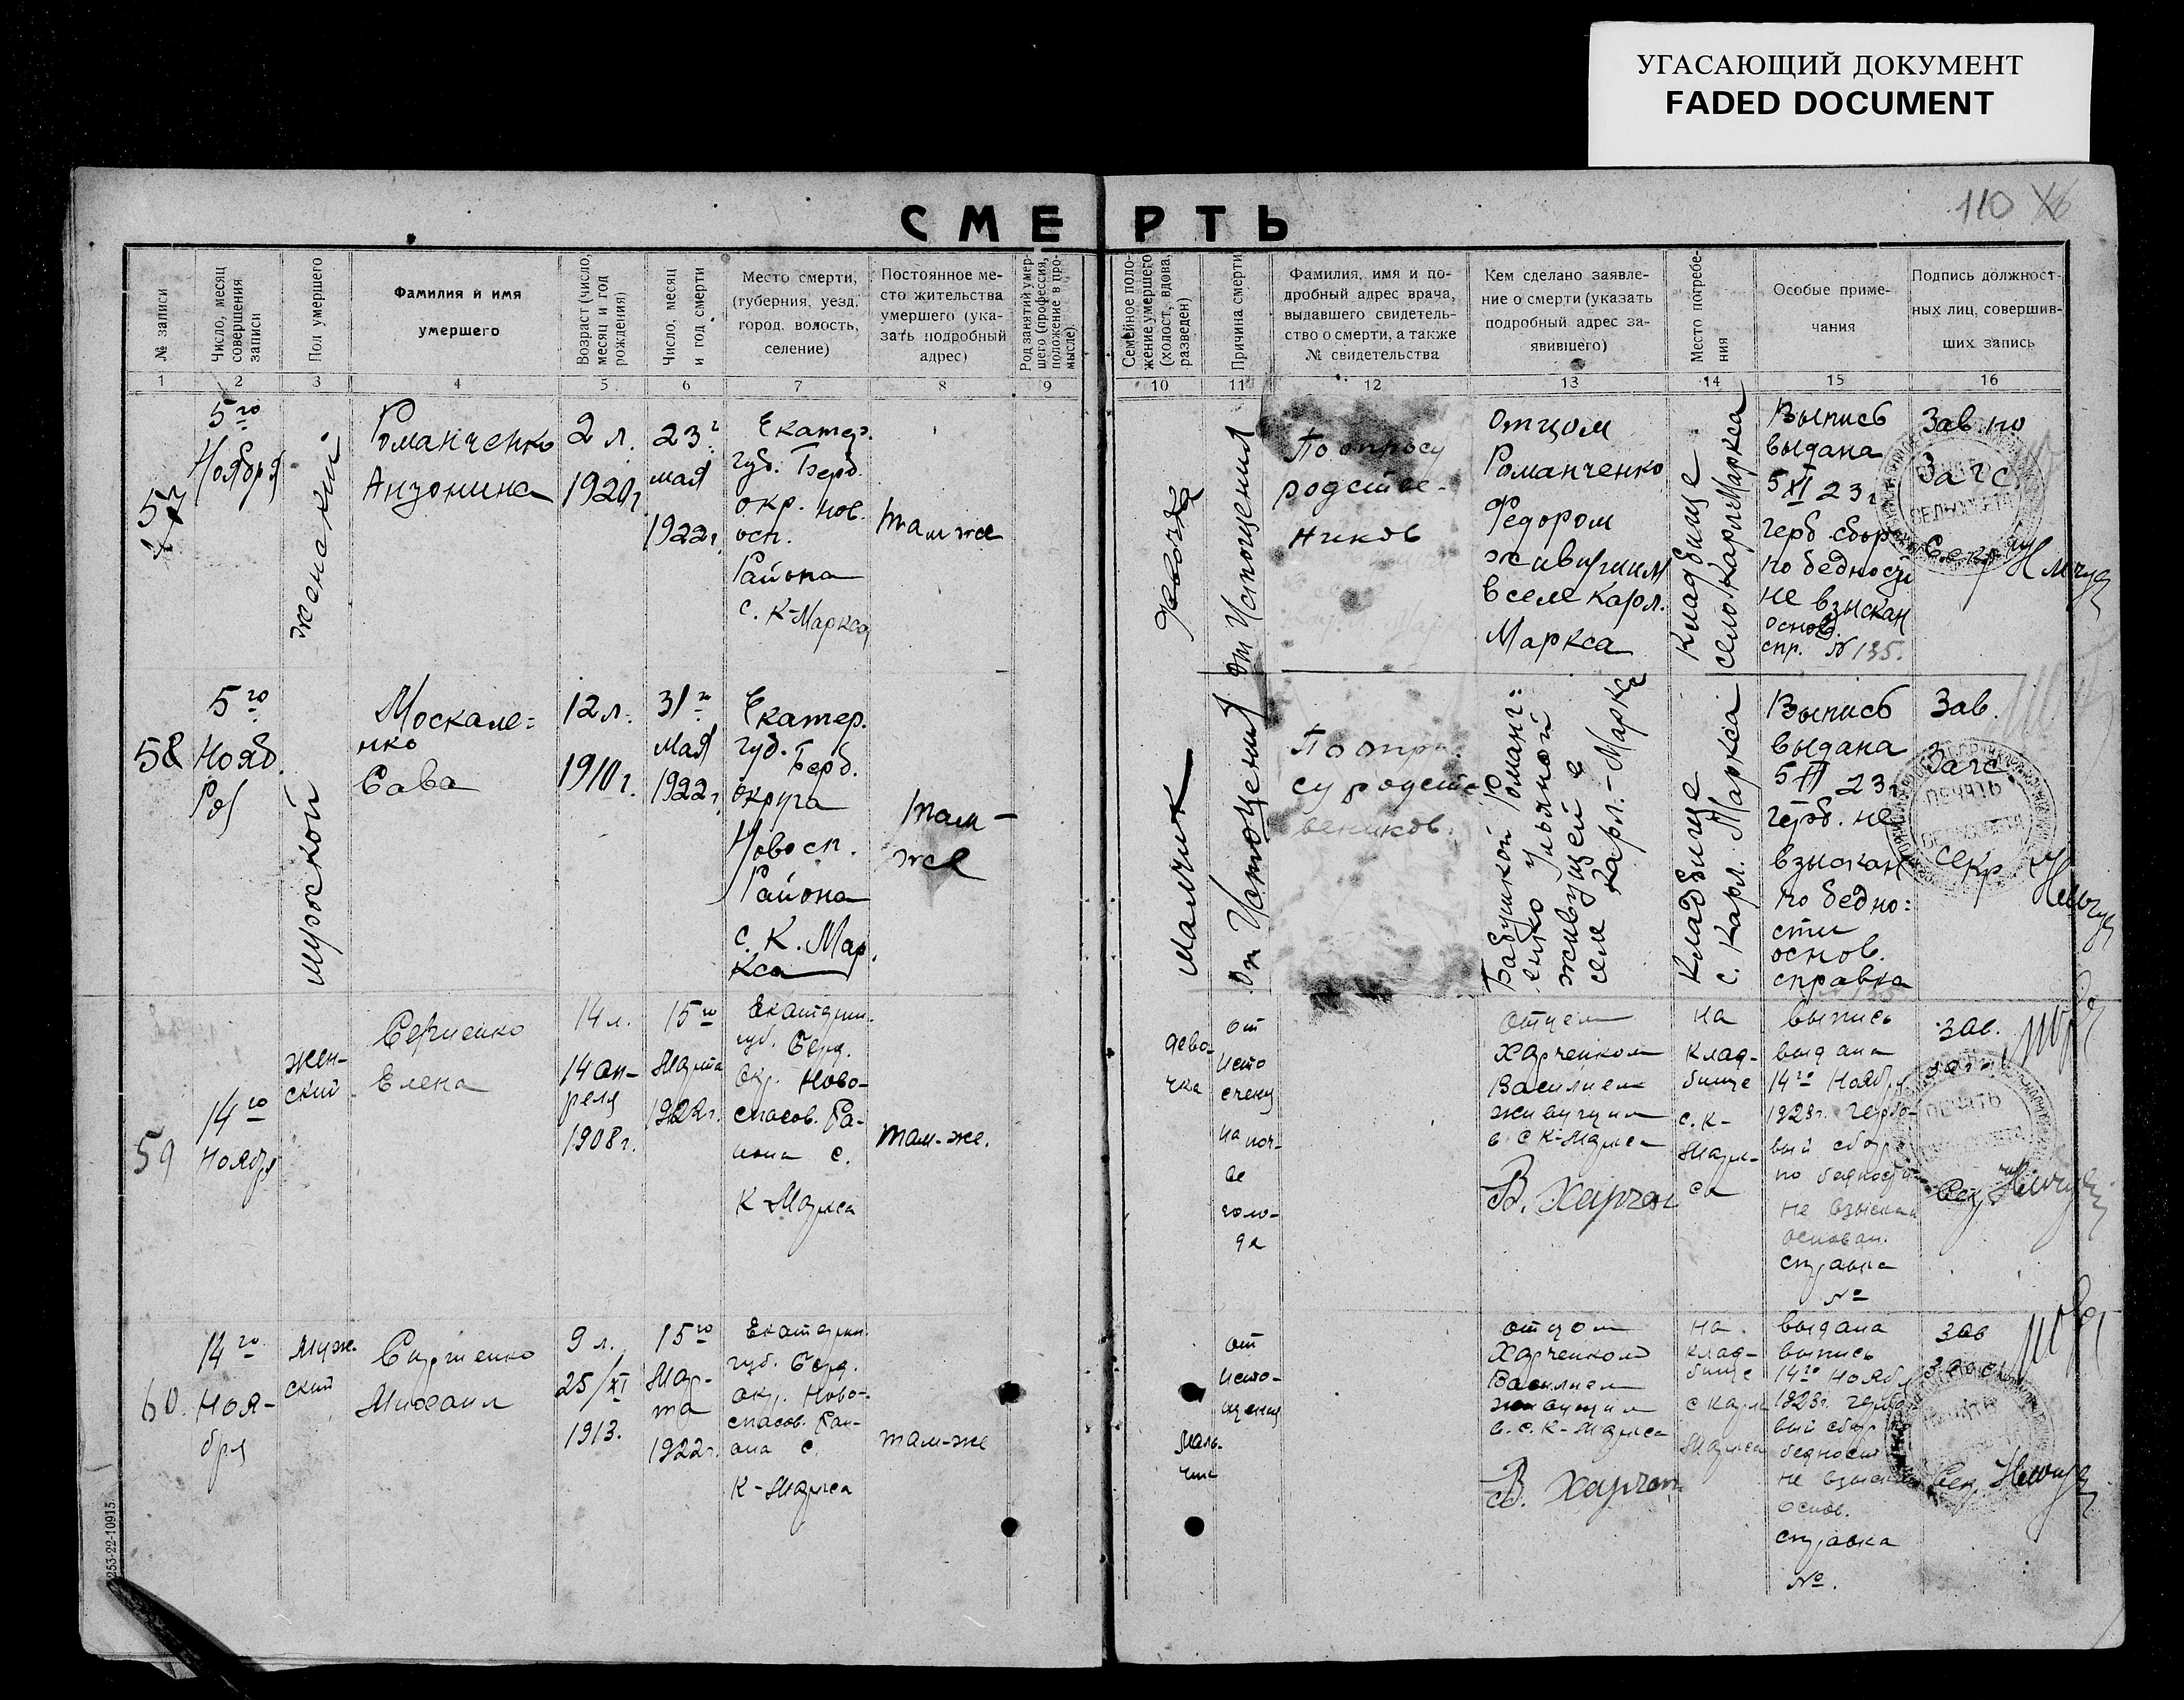 УГАСАЮЩИЙ ДОКУМЕНТ
FADED DOCUMENT
110
СМЕРТЬ
№ записи
Число, месяц
совершения
записи
Пол умершего
Фамилия и имя
умершего
Возраст (число,
месяц и год
рождения)
Число, месяц
и год смерти
Место смерти,
(губерния, уезд,
город, волость,
селение)
Постоянное ме-
сто жительства
умершего (ука-
зать подробный
адрес)
Род занятий умер-
шего (профессия,
положение в про-
мысле).
Семейное поло-
жение умершего
(холост, вдова,
разведен)
Причина смерти
Фамилия, имя и по-
дробный адрес врача,
выдавшего свидетель-
ство о смерти, а также
№ свидетельства
Кем сделано заявле-
ние о смерти (указать
подробный адрес за-
явившего)
Место погребе-
ния
Особые приме-
чания
Подпись должност-
ных лиц, совершив-
ших запись
1 2 3 4 5 6 7 8 9 10 11 12 13 14 15 16
57
5го
Ноября
женский
Романченко
Антонина
2 л.
1920г.
23г
мая
1922г.
Екатер.
губ. Берд.
окр. нов.
осп.
Района
с. К-Маркса
там же
девочка
От Истощения
По опросу
родстве-
ников
Отцом
Романченко
Федором
живущим
в селе Карл.
Маркса
Кладбище
село Карл Маркса
Выпись
выдана
5 XI 23г
герб. сбор
по бедности
не взыскан
основ.
спр. № 135.
Зав. по
Загс
Секр
58
5го
Нояб.
Ря
мужской
Москале=
нко
Сава
12 л.
1910г.
31го
мая
1922г.
Екатер.
губ. Берд.
округа
Новосп.
Района
с. К. Мар.
кса
там-
же
мальчик
От Истощения
По опро-
су родств-
венников.
Бабушкой Роман=
енко Ульяной
живущей в
селе Карл.-Маркса
Кладбище
с. Карл. Маркса
Выпись
выдана
5 XI 23г
герб. не
взыскан
по бедно=
сти
основ.
справка
Зав.
Загс.
ПЕЧАТЬ
секр
59
14го
Ноября
жен-
ский
Елена
14 л.
14 ап-
реля
1908г.
15го
Марта
1922г.
Екатерин.
губ. Берд.
окр. Ново-
спасов. Ра-
иона с.
К-Маркса
там-же.
дево-
чка
от
исто
щения
на поч-
ве
голо-
да
отцем
Харченком
Василием
живущим
в. с К-Маркса
В. Харчен
на
клад-
бище
с. К-
Марк-
са
выпись
выдана
14го Ноября
1923г. гербо-
вый сбор
по бедности
не взыскан
основан.
справка
№
зав.
ПЕЧАТЬ
Сек
60.
14го
Ноя-
бря
муж.
ский
Михаил
9 л.
25/XI
1913.
15го
Мар-
та
1922г.
Екатерин.
губ. Берд.
окр. Ново-
спасов. Рай-
она с.
К-Маркса
там-же
маль-
чик
от
исто-
щения
отцом
Харченком
Василием
живущим
в. с. К-Маркса
В. Харчен
на
клад-
бище
с Карл
Маркса
выдана
выпись
14го Ноября
1923г. гербо
вый сбор
бедности
не взыскан
основ.
справка
№.
зав
Сек
253-22-10915.